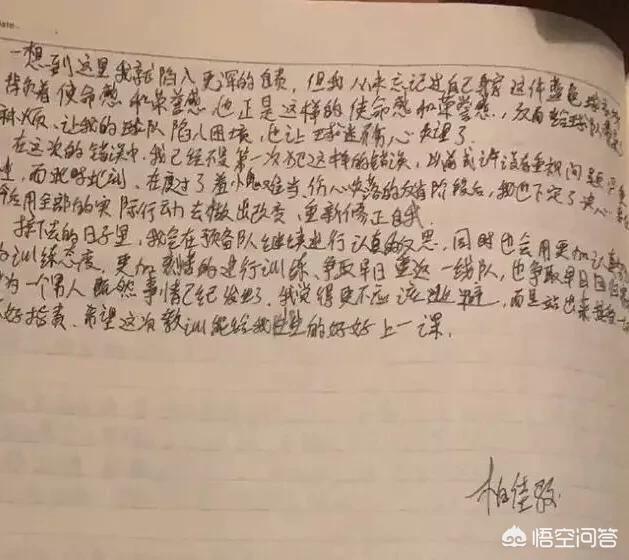 ate.
一想到这里我就陷入更深的自责，但我从来忘记过自己身穿这件蓝色球衣
背负着使命感和荣誉感，也正是这样的使命感和荣誉感，反而给球队
麻烦、让我的球队陷入困境，也让球迷伤心失望了
在这次的错误中，我已经不是第一次犯这样的错误，以前或许没有重视问题
而此时此刻，在度过了羞愧难当、伤心失落的阶段后，我也下定了决心
会用全部的实际行动去做出改变，重新修正自我.
接下去的日子里，我会在预备队继续进行认真的反思，同时也会用更加认真
的训练态度，更加刻苦的进行训练、争取早日重返一线队，也争取早日回归
作为一个男人既然事情已经发生了，我觉得更不应该逃避，而是站出来接受一
好指责，希望这次教训能给我的好好上一课.
柏佳骏
悟空问答